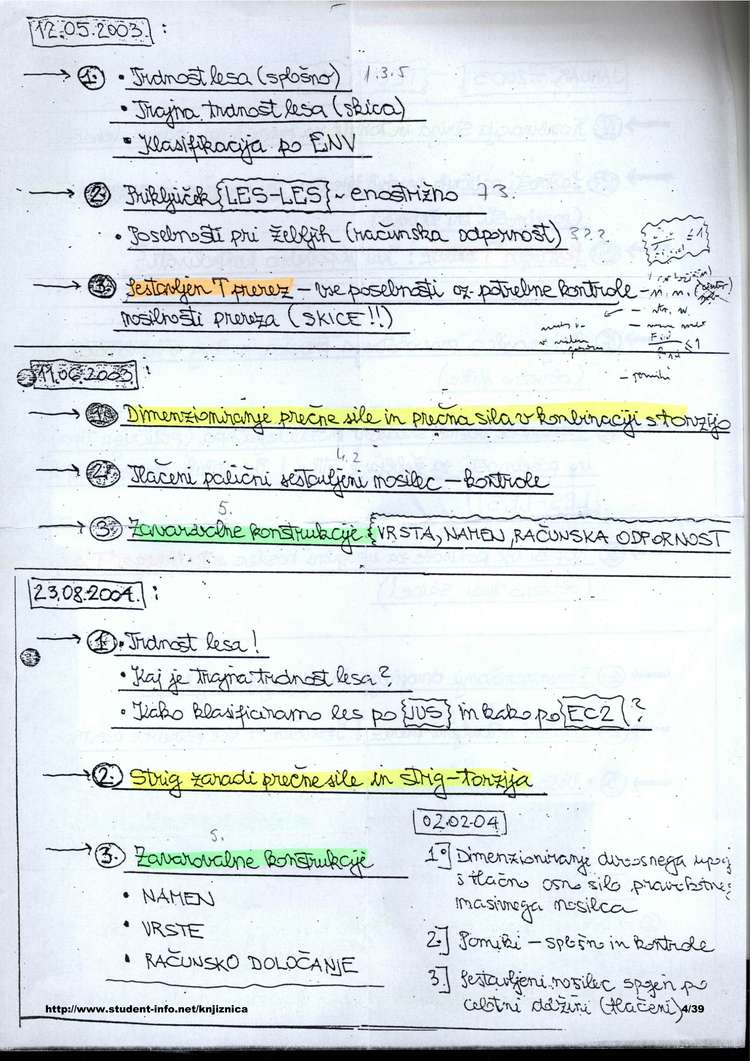 12.05.2003.:
1. • Trdnost lesa (splošno) 1.3.5
• Trajna trdnost lesa (skica)
• Klasifikacija po ENV
2. Priključek {LES-LES} - enostrižno 73.
• Posebnosti pri žebljih (računska odpornost) ???
3. Sestavljen T prerez - vse posebnosti oz. potrebne kontrole -
nosilnosti prereza (SKICE!!)
≤1
- pomiki
:
1. Dimenzioniranje prečne sile in prečna sila v kombinaciji s torzijo
4.2
2. Tlačeni palični sestavljeni nosilec - kontrole
5.
3. Zavarovalne konstrukcije {VRSTA, NAMEN, RAČUNSKA ODPORNOST
23.08.2004.:
1. • Trdnost lesa!
• Kaj je trajna trdnost lesa?
• Kako klasificiramo les po {JUS} in kako po {EC2}?
2. Strig zaradi prečne sile in strig-torzija
5.
3. Zavarovalne konstrukcije
• NAMEN
• VRSTE
• RAČUNSKO DOLOČANJE
02.02.04
1.] Dimenzioniranje dvoosnega upog
s tlačno osno silo pravokotneg
masivnega nosilca
2.] Pomiki - splošno in kontrole
3.] Sestavljeni nosilec spojen po
celotni dolžini (tlačeni)
http://www.student-info.net/knjiznica
4/39